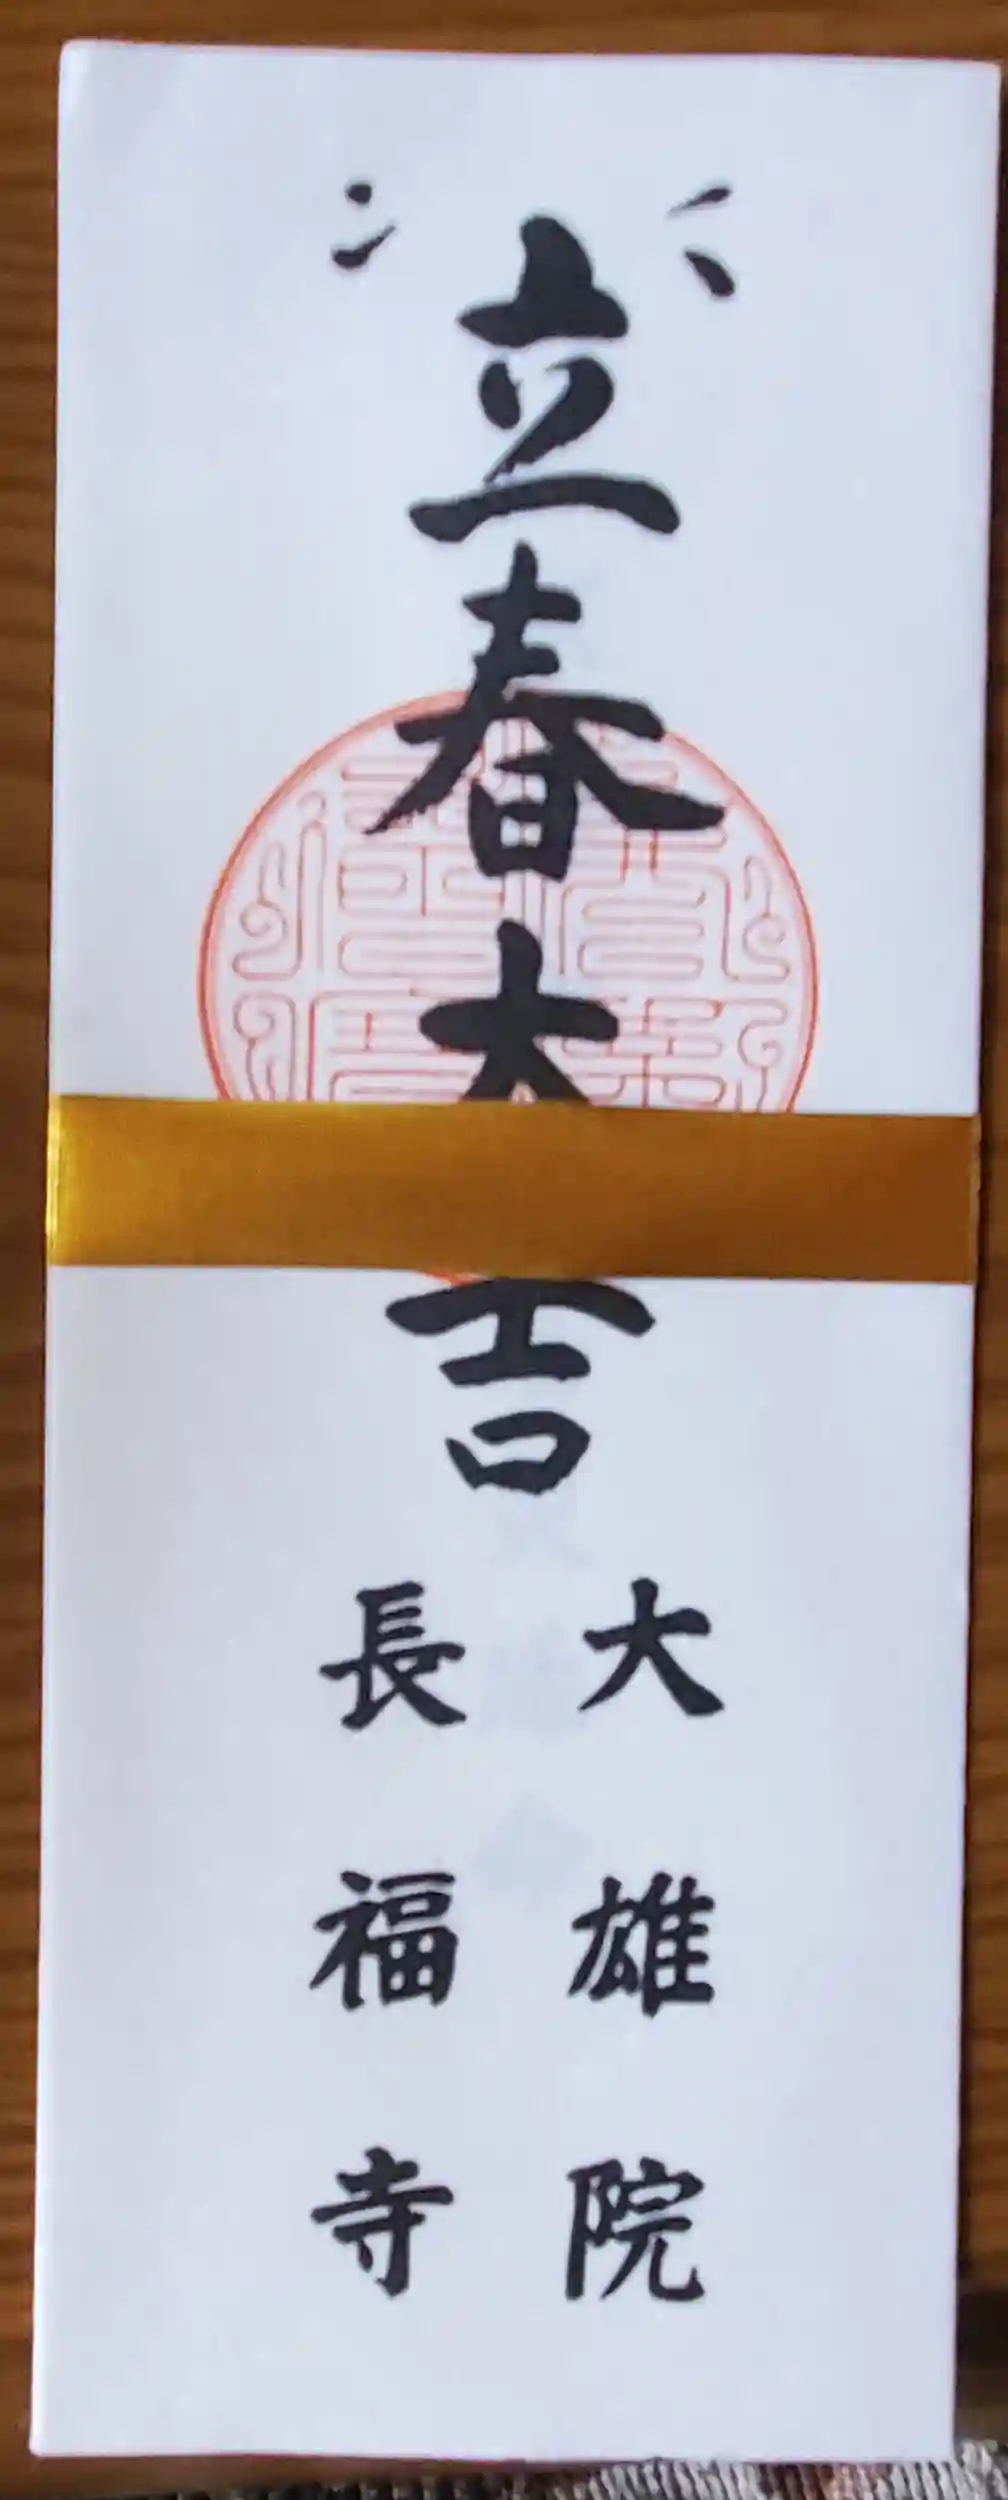 立春大吉
大雄院
長福寺